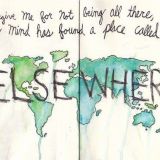 give me for not being all there,
y mind has found a place called
ELSEWHER